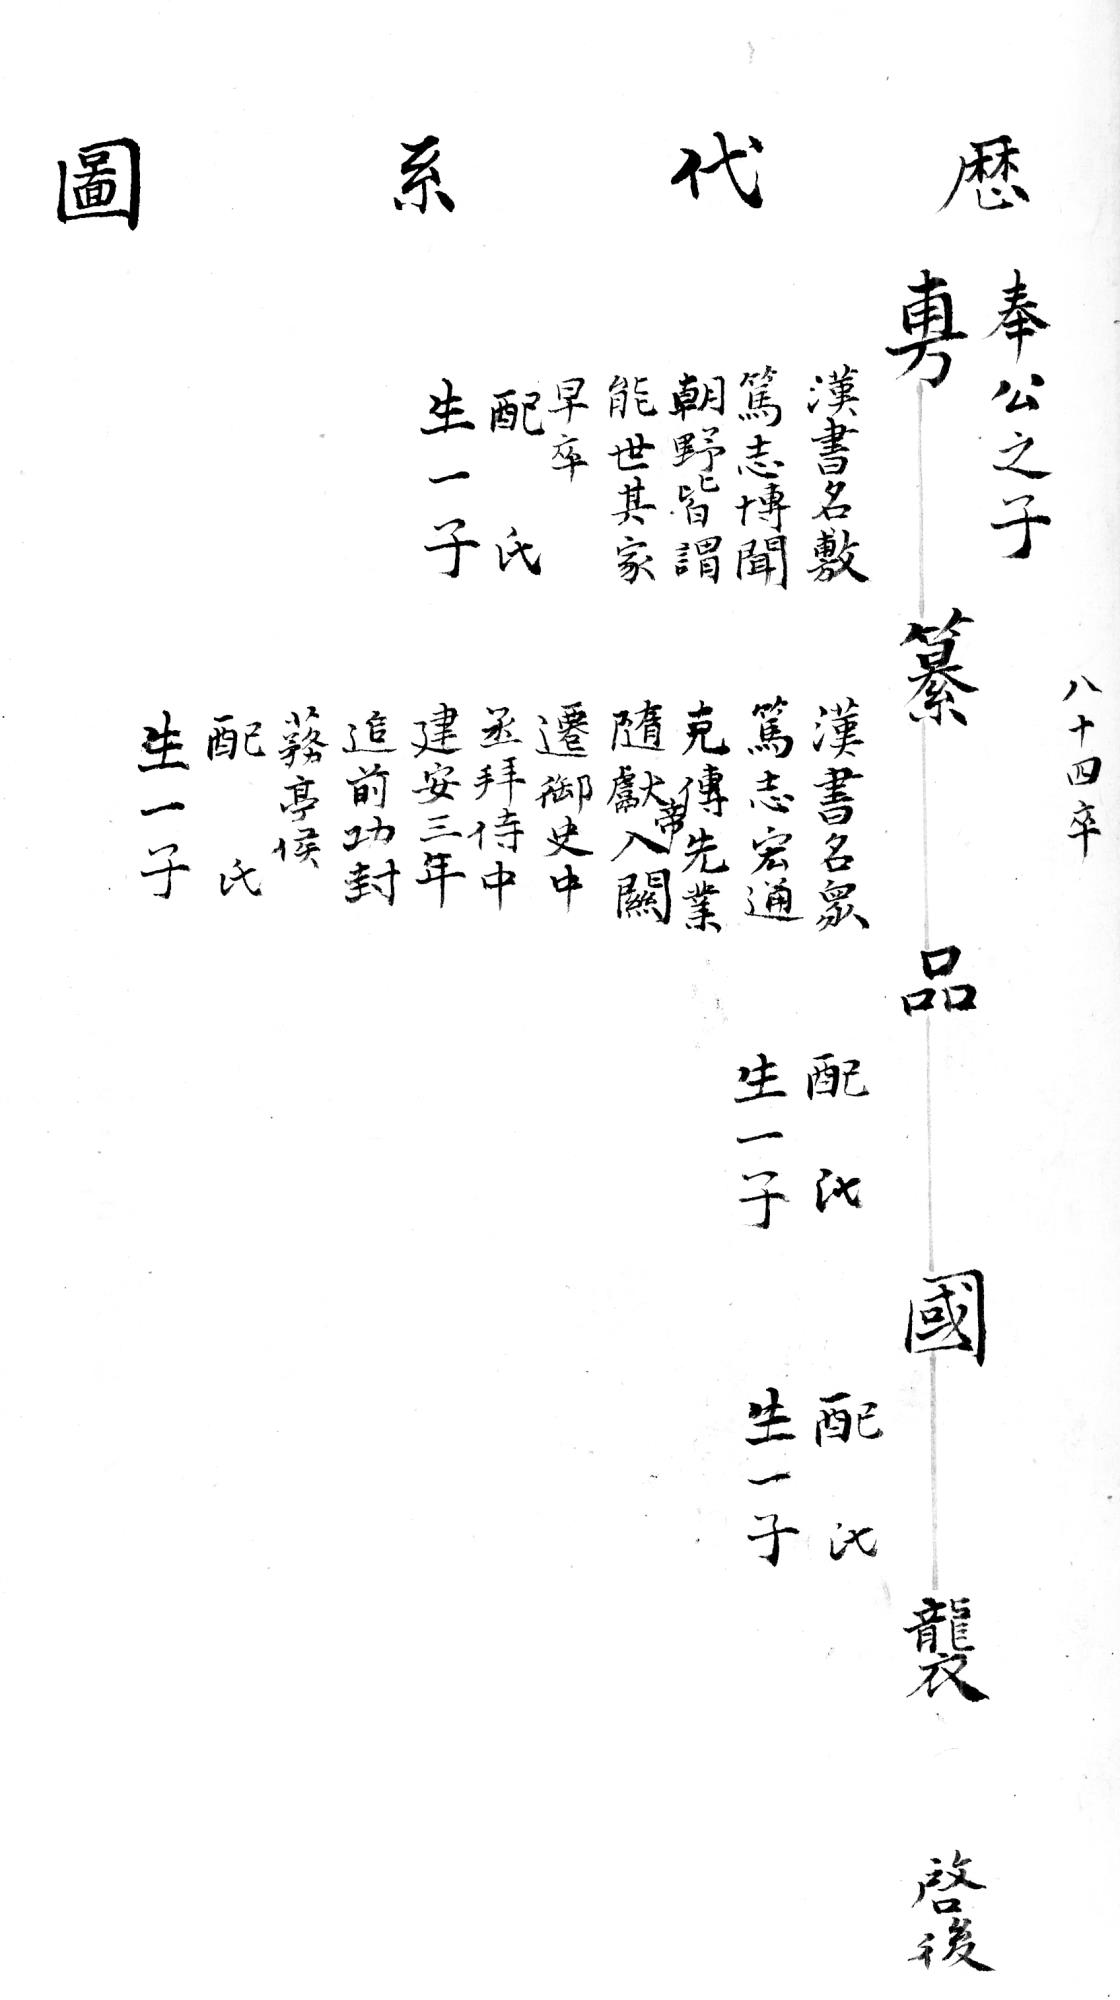 歷代系圖
八十四卒
奉公之子
甹
漢書名敷
篤志博聞
朝野皆謂
能世其家
早卒
配　氏
生一子
纂
漢書名衆
篤志宏通
克傳先業
隨獻帝入關
遷御史中
丞拜侍中
建安三年
追前功封
蓩亭侯
配　氏
生一子
品
配　氏
生一子
國
配　氏
生一子
襲
啓後